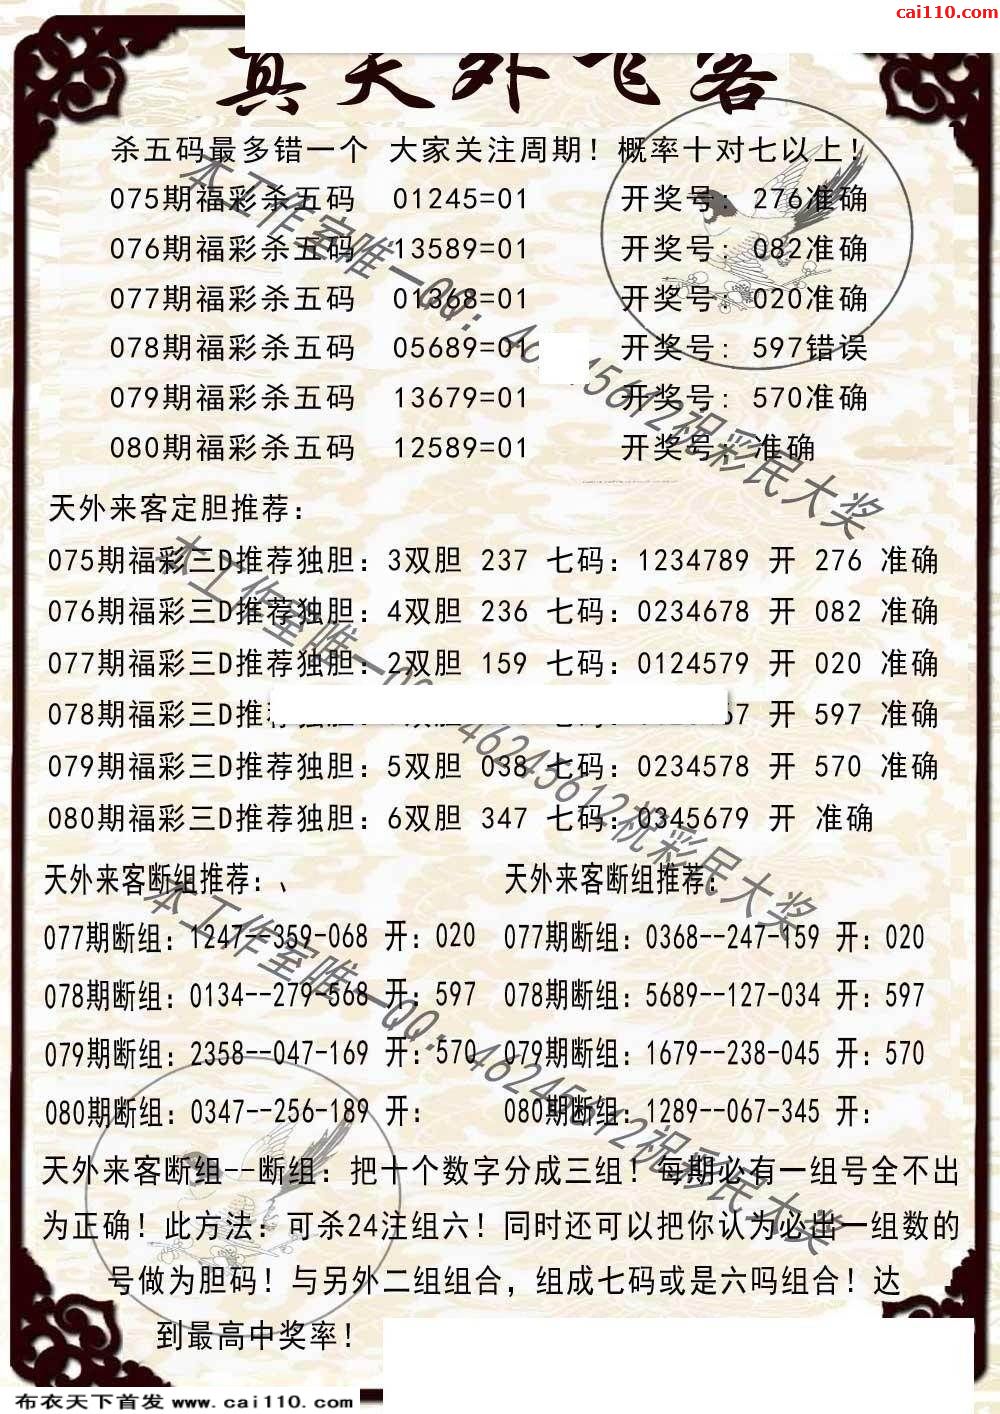 cai110.com
真天外飞客
杀五码最多错一个 大家关注周期！概率十对七以上！
075期福彩杀五码 01245=01 开奖号：276准确
076期福彩杀五码 13589=01 开奖号：082准确
077期福彩杀五码 01368=01 开奖号：020准确
078期福彩杀五码 05689=01 开奖号：597错误
079期福彩杀五码 13679=01 开奖号：570准确
080期福彩杀五码 12589=01 开奖号：准确
天外来客定胆推荐：
075期福彩三D推荐独胆：3双胆 237 七码：1234789 开 276 准确
076期福彩三D推荐独胆：4双胆 236 七码：0234678 开 082 准确
077期福彩三D推荐独胆：2双胆 159 七码：0124579 开 020 准确
078期福彩三D推荐独胆 67 开 597 准确
079期福彩三D推荐独胆：5双胆 038 七码：0234578 开 570 准确
080期福彩三D推荐独胆：6双胆 347 七码：0345679 开 准确
天外来客断组推荐：、 天外来客断组推荐：
077期断组：1247--359-068 开：020 077期断组：0368--247-159 开：020
078期断组：0134--279-568 开：597 078期断组：5689--127-034 开：597
079期断组：2358--047-169 开：570 079期断组：1679--238-045 开：570
080期断组：0347--256-189 开： 080期断组：1289--067-345 开：
天外来客断组--断组：把十个数字分成三组！每期必有一组号全不出
为正确！此方法：可杀24注组六！同时还可以把你认为必出一组数的
号做为胆码！与另外二组组合，组成七码或是六吗组合！达
到最高中奖率！
布衣天下首发 www.cai110.com
本工作室唯一QQ：46245612祝彩民大奖
本工作室唯一QQ：46245612祝彩民大奖
本工作室唯一QQ：46245612祝彩民大奖